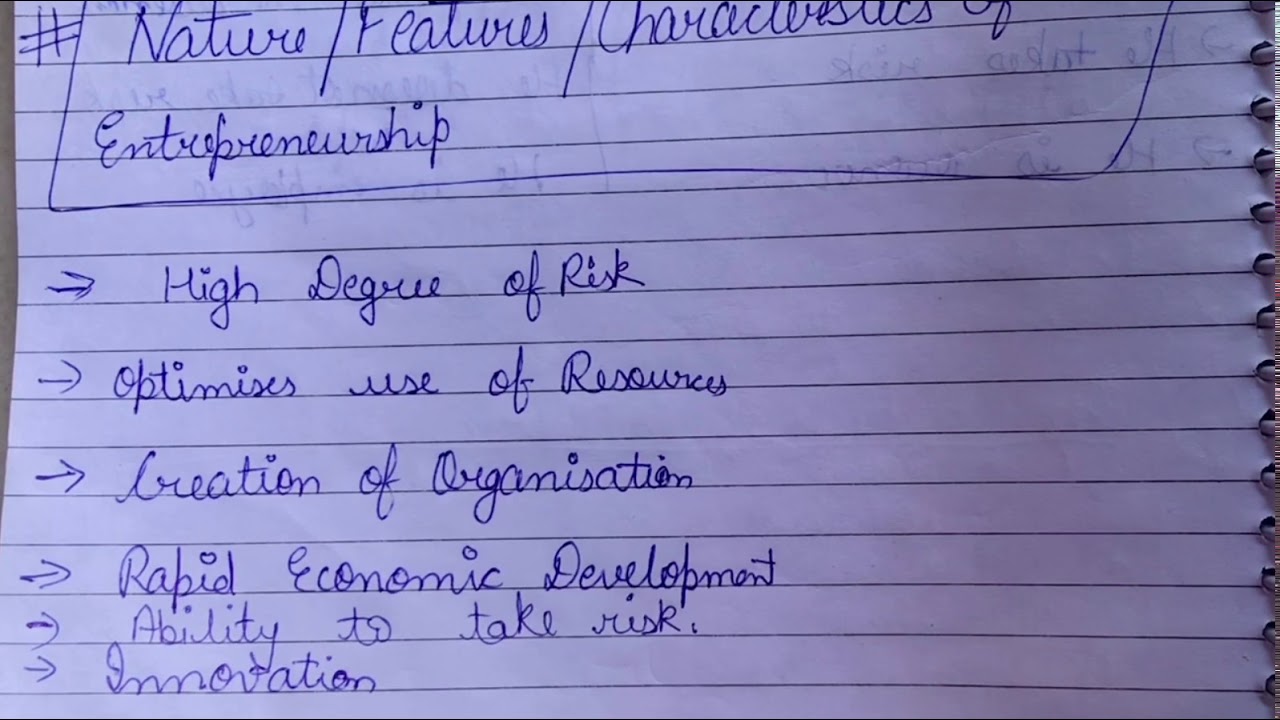 # Nature/Features/Characteristics of
Entrepreneurship
⇒ High Degree of Risk
→ Optimises use of Resources
→ Creation of Organisation
⇒ Rapid Economic Development
→ Ability to take risk.
→ Innovation